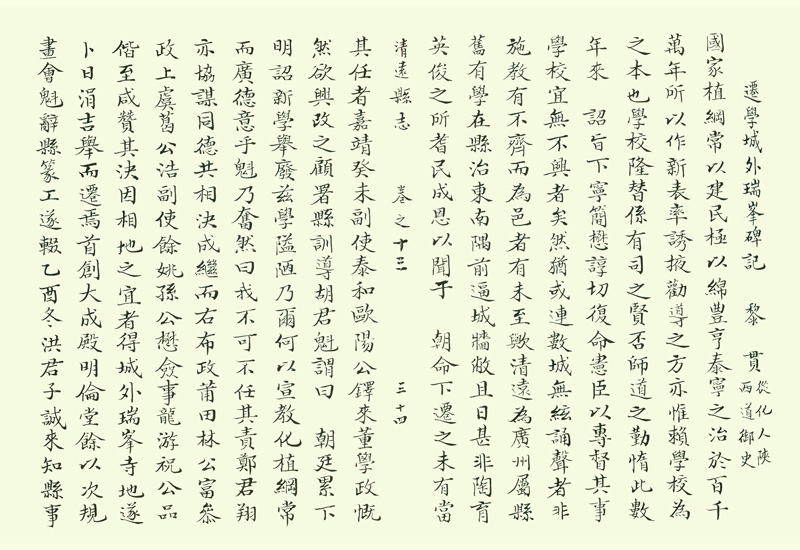 遷學城外瑞峯碑記 黎貫從化人陝西道御史
國家植綱常以建民極以綿豊亨泰寧之治於百千
萬年所以作新表率誘掖勸導之方亦惟賴學校為
之本也學校隆替係有司之賢否師道之勤惰此數
年來 詔旨下寧簡懋諄切復命憲臣以專督其事
學校宜無不興者矣然猶或連數城無絃誦聲者非
施教有不齊而為邑者有未至歟清遠為廣州屬縣
舊有學在縣治東南隅前逼城牆敝且日甚非陶育
英俊之所耆民成恩以聞于 朝命下遷之未有當
清遠縣志 卷之十三 三十四
其任者嘉靖癸未副使泰和歐陽公鐸來董學政慨
然欲興改之顧署縣訓導胡君魁謂曰 朝廷累下
明詔新學舉廢兹學隘陋乃爾何以宣教化植綱常
而廣德意乎魁乃奮然曰我不可不任其責鄭君翔
亦協謀同德共相決成繼而右布政莆田林公富叅
政上虞葛公浩副使餘姚孫公懋僉事龍游祝公品
偕至咸贊其決因相地之宜者得城外瑞峯寺地遂
卜日涓吉舉而遷焉首創大成殿明倫堂餘以次規
畫會魁辭縣篆工遂輟乙酉冬洪君子誠來知縣事